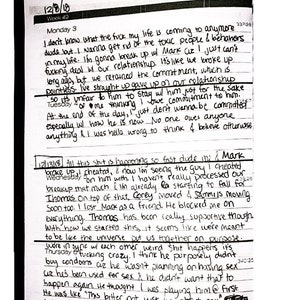 12/8/18
Week 49
Monday 3
I don't know what the fuck my life is coming to anymore
dude but I wanna get rid of the toxic people & behaviors
in my life. I'm gonna break up w/ Mark cuz I just can't
fucking deal w/ our relationship. It's like we broke up
long ago, but we retained the commitment, which is
pointless. I've straight up gave up on our relationship
so its unfair to him to stay w/ him just for the sake
Tuesday 4 of me thinking I owe commitment to him.
At the end of the day, I just dont wanna be committed
especially w/ how he is now. No one owes anyone
anything & I was hella wrong to think & believe otherwise.
12/19/18 All this shit is happening so fast dude. Mark
broke up, I cheated, & now im seeing the guy I cheated
Wednesday on him with. I haven't really processed our
breakup that much & I'm already starting to fall for
Thomas on top of that. Corey moved & is moving
soon too. I lost Mark as a friend. He blocked me on
everything. Thomas has been really supportive though.
With how we started this, it seems like we were meant
to be like the universe put us together on purpose.
were in sync w/ each other weird shit happens its
Thursday 6 fucking crazy. I think he purposely didn't
buy condoms cuz he wasn't planning on having sex
cuz he's been used for sex & he didn't want that to
happen again. He thought I was playing him @ first
He was like "This bitter not